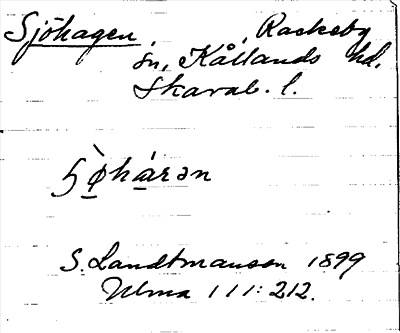 Sjöhagen, Rackeby
sn, Kållands hd.
Skarab. l.
S. Landtmanson 1899
Ulma III: 212.